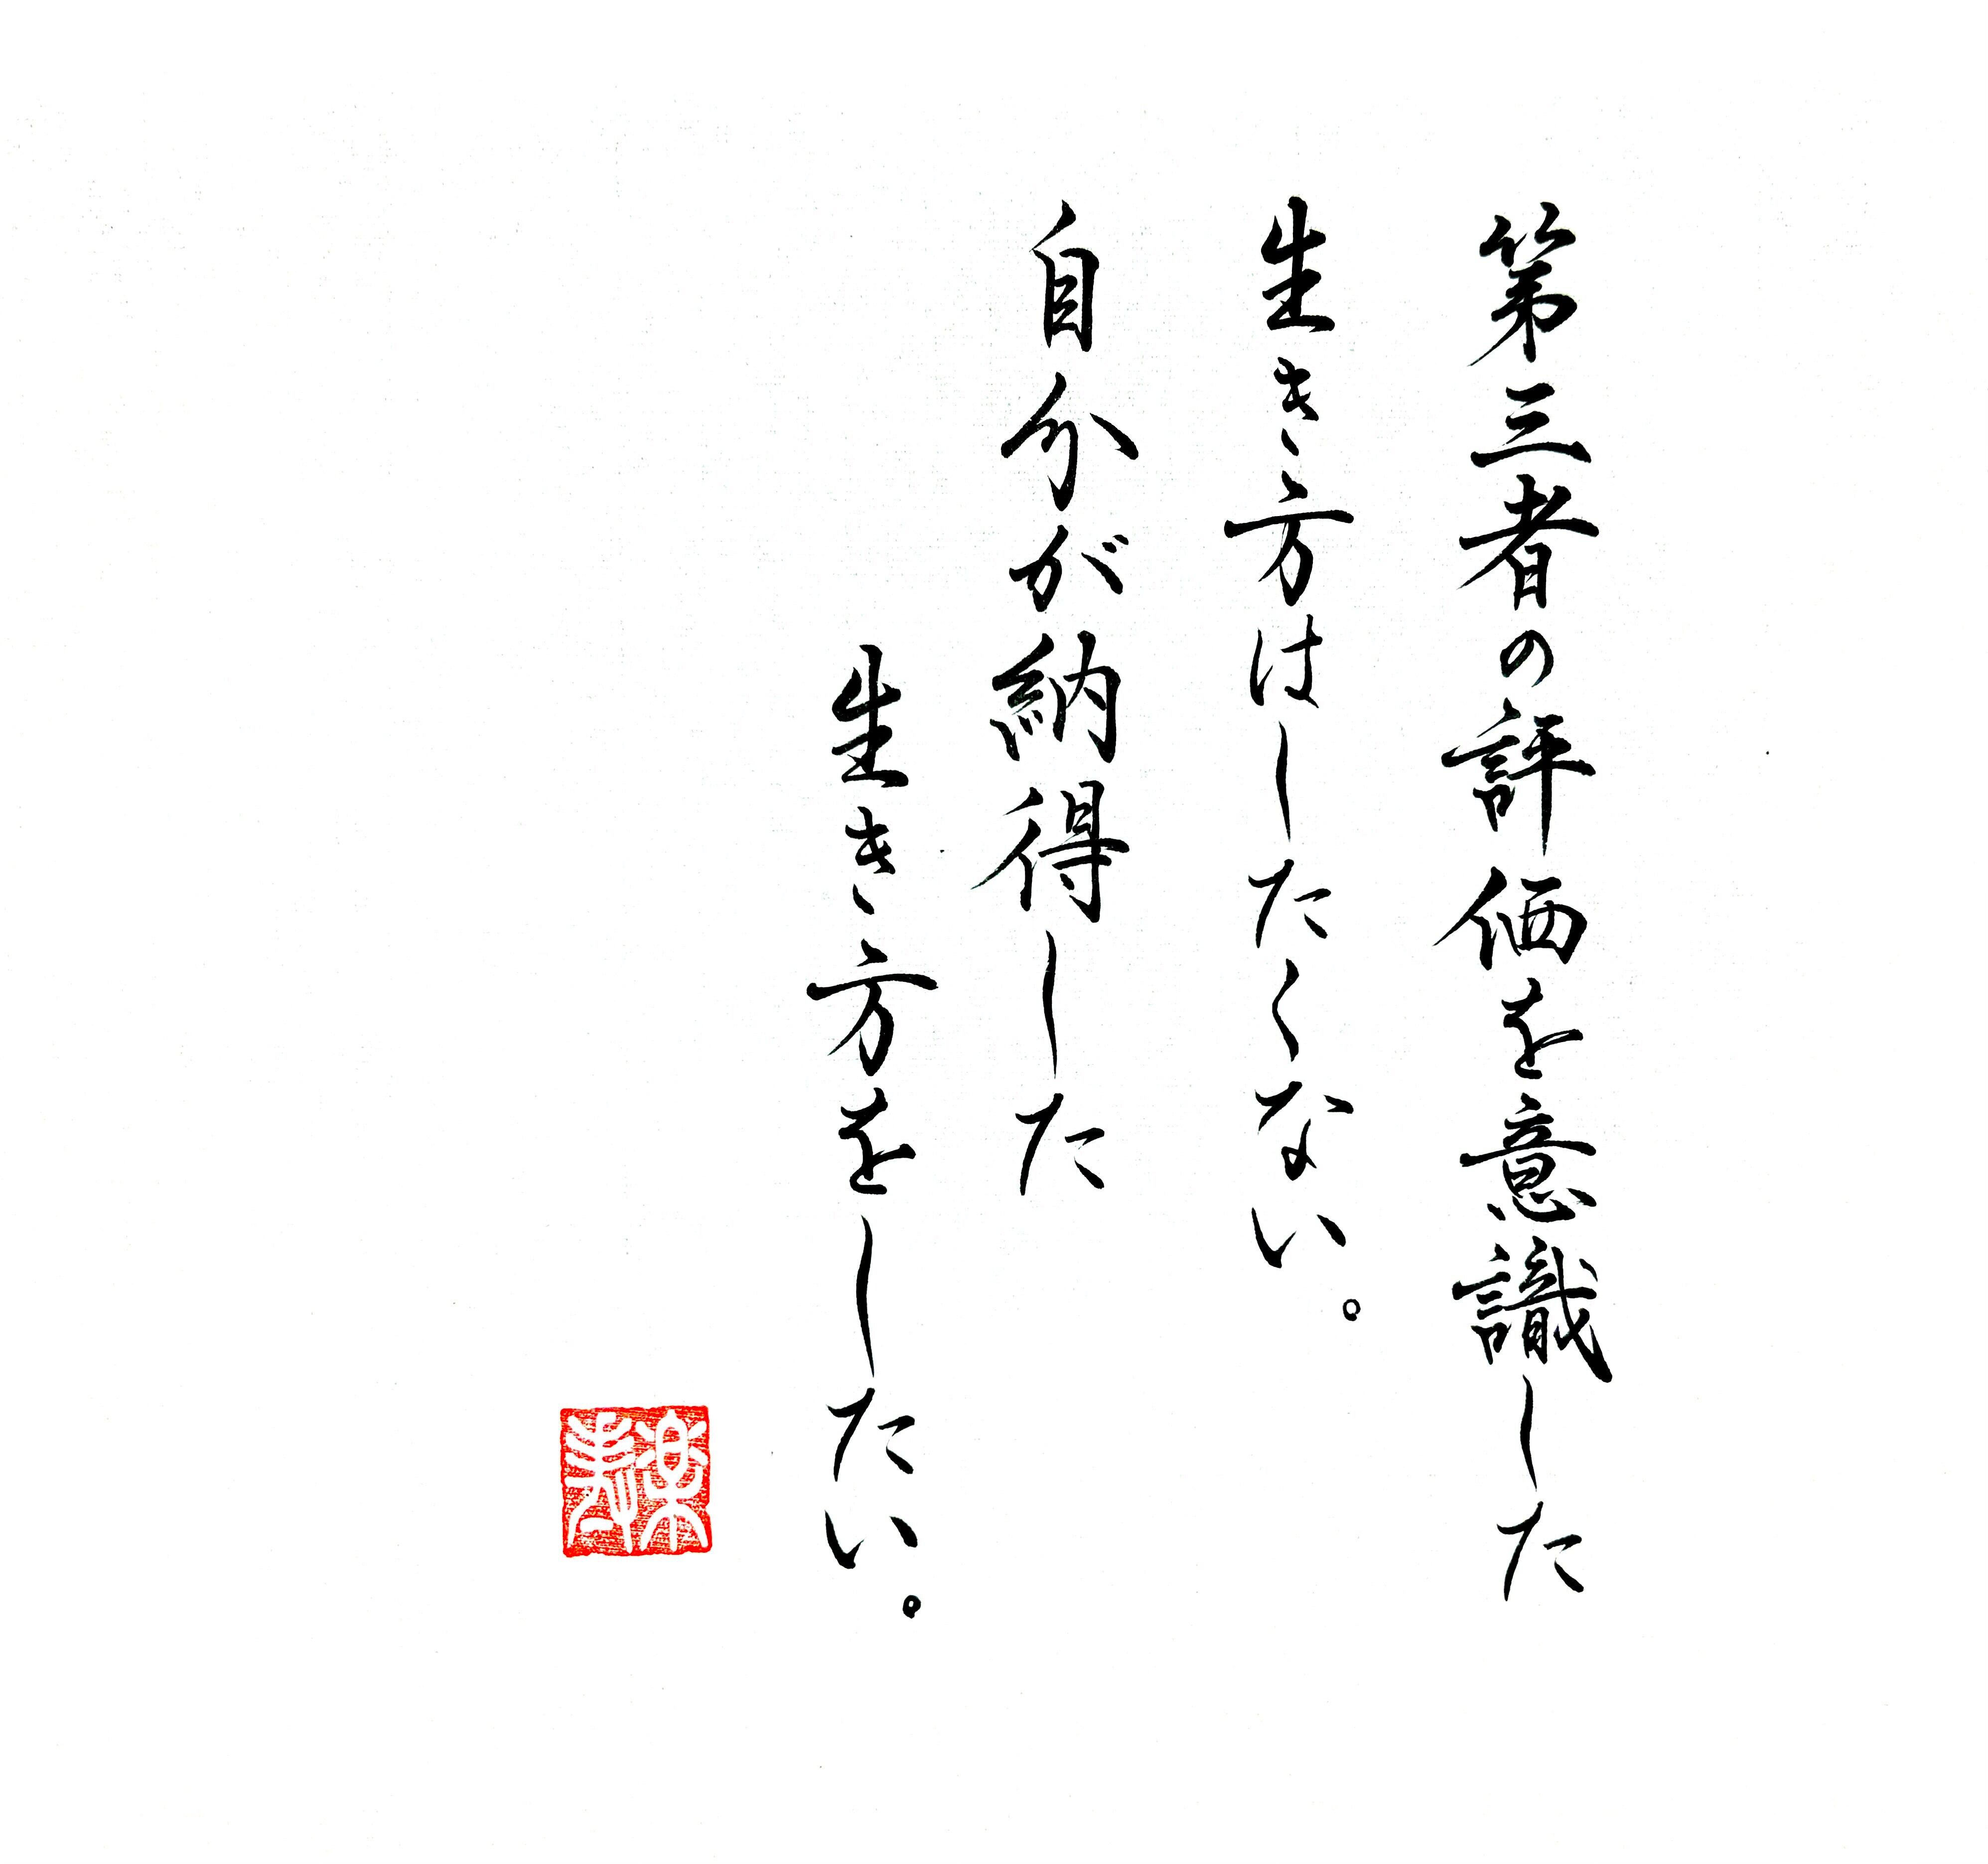 第三者の評価を意識した
生き方はしたくない。
自分が納得した
生き方をしたい。